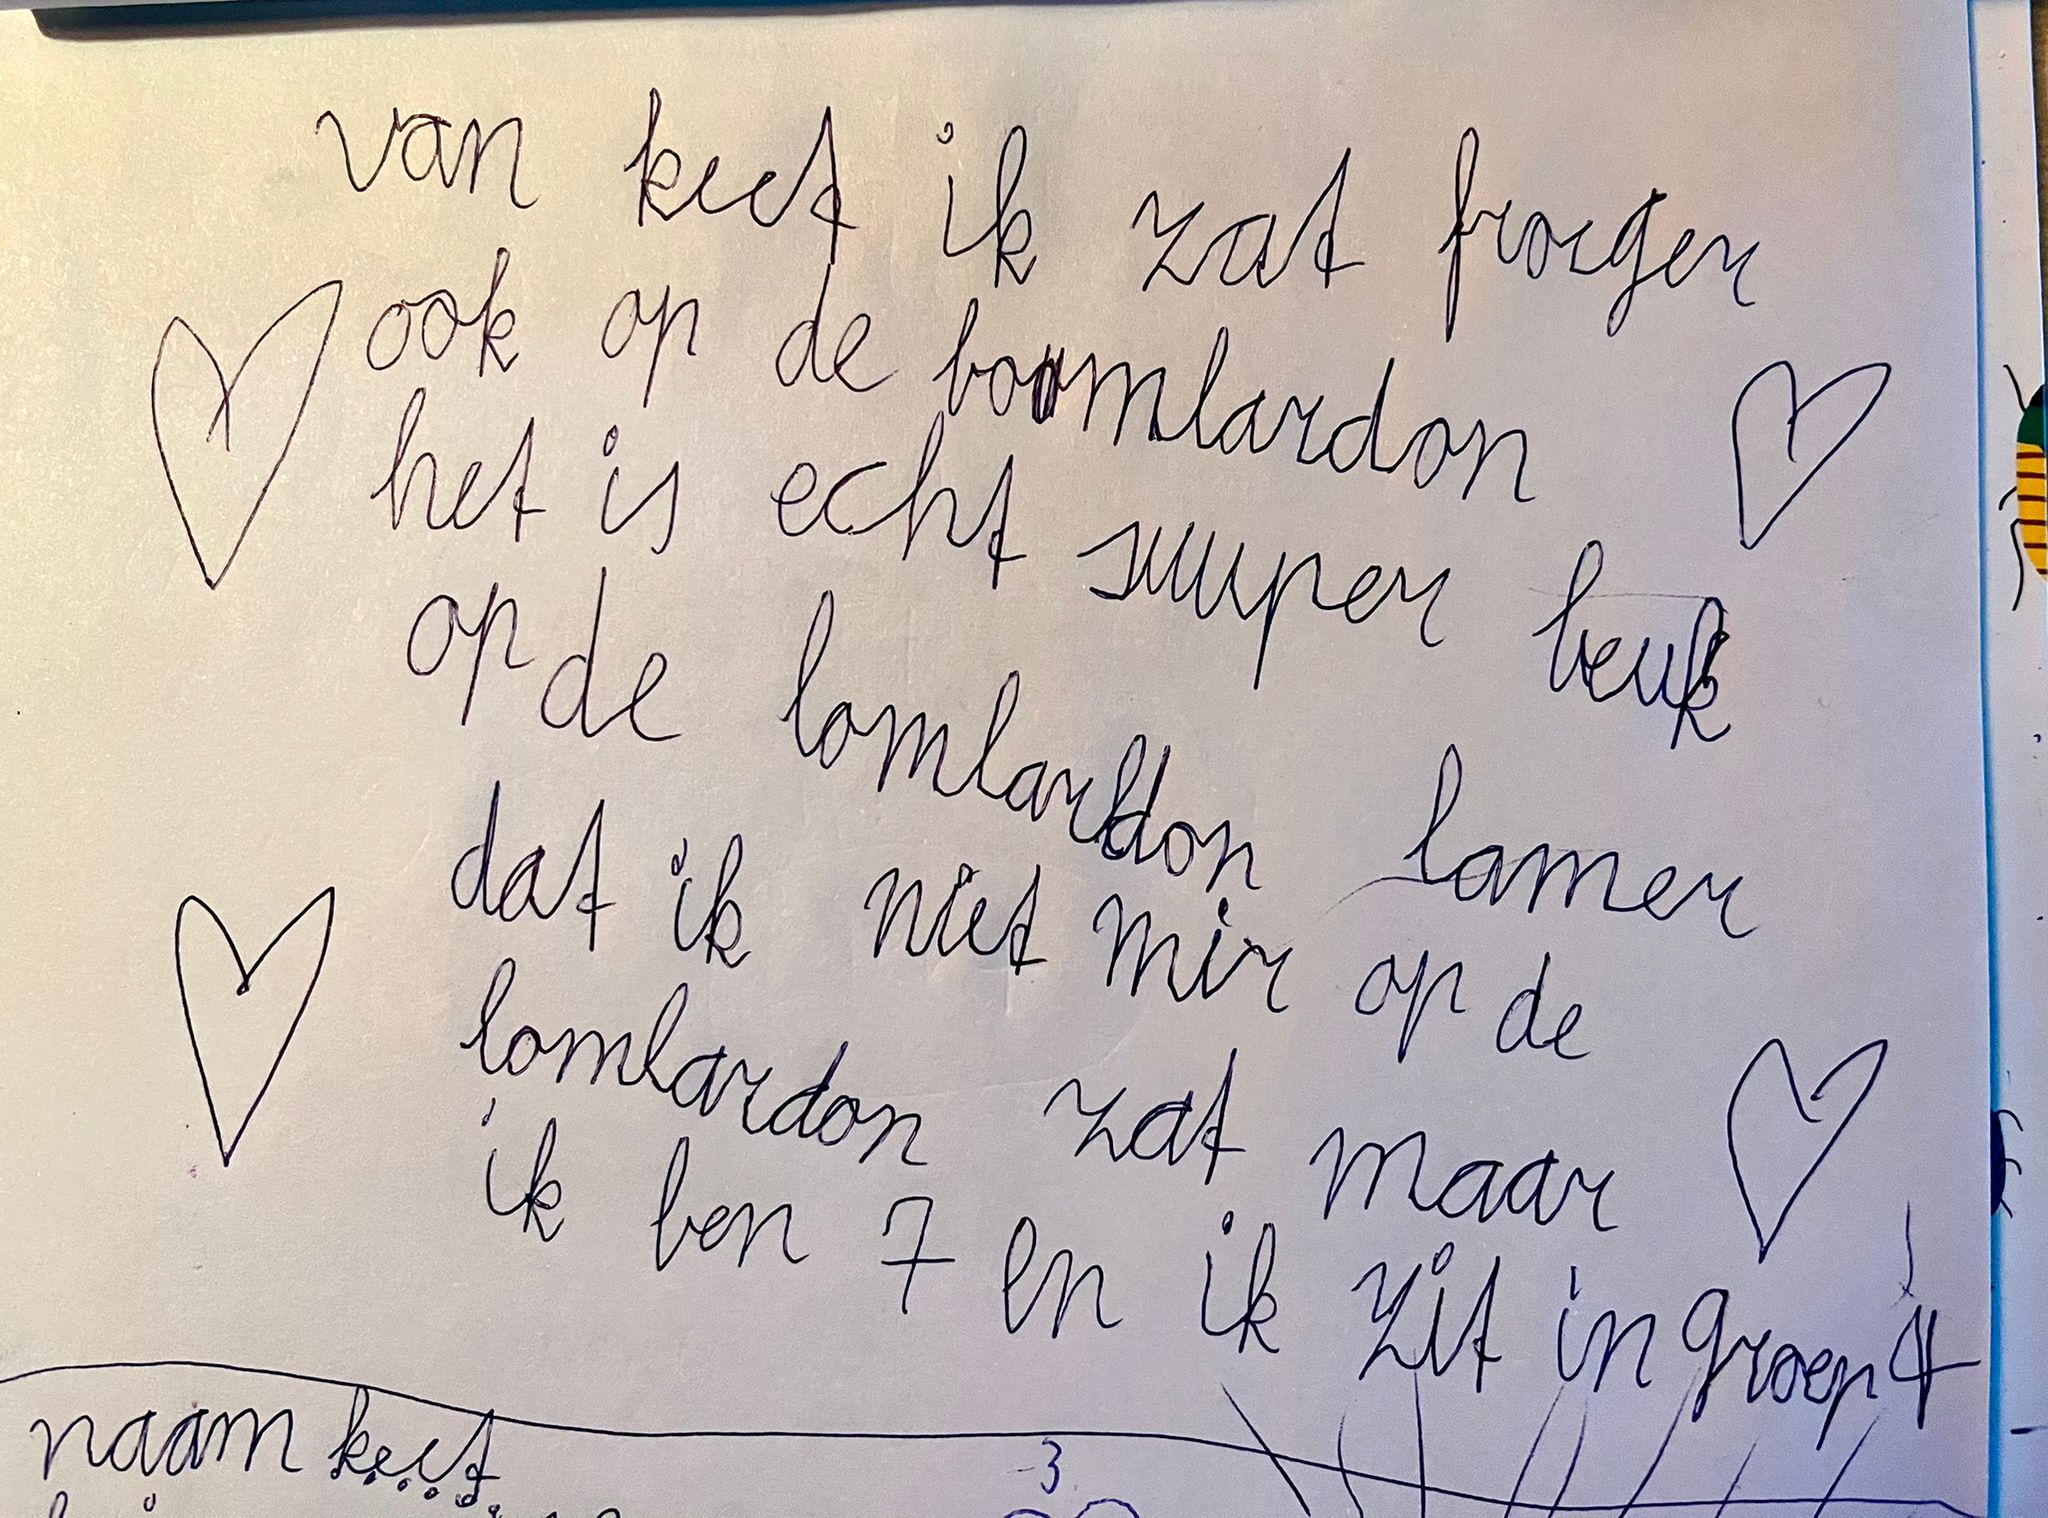 van keet ik zat froeger
ook op de bomlardon
het is echt suuuper leuk
op de lomlardon lamer
dat ik niet mir op de
lomlardon zat maar
ik ben 7 en ik zit in groep 4
naam keet
3